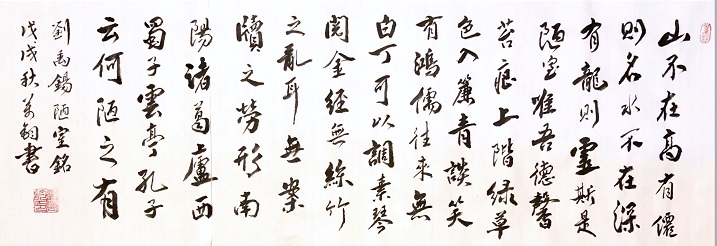 山不在高有僊
則名水不在深
有龍則靈斯是
陋室唯吾德馨
苔痕上階綠草
色入簾青談笑
有鴻儒往來無
白丁可以調素琴
閱金經無絲竹
之亂耳無案
牘之勞形南
陽諸葛廬西
蜀子雲亭孔子
云何陋之有
劉禹錫陋室銘
戊戌秋書